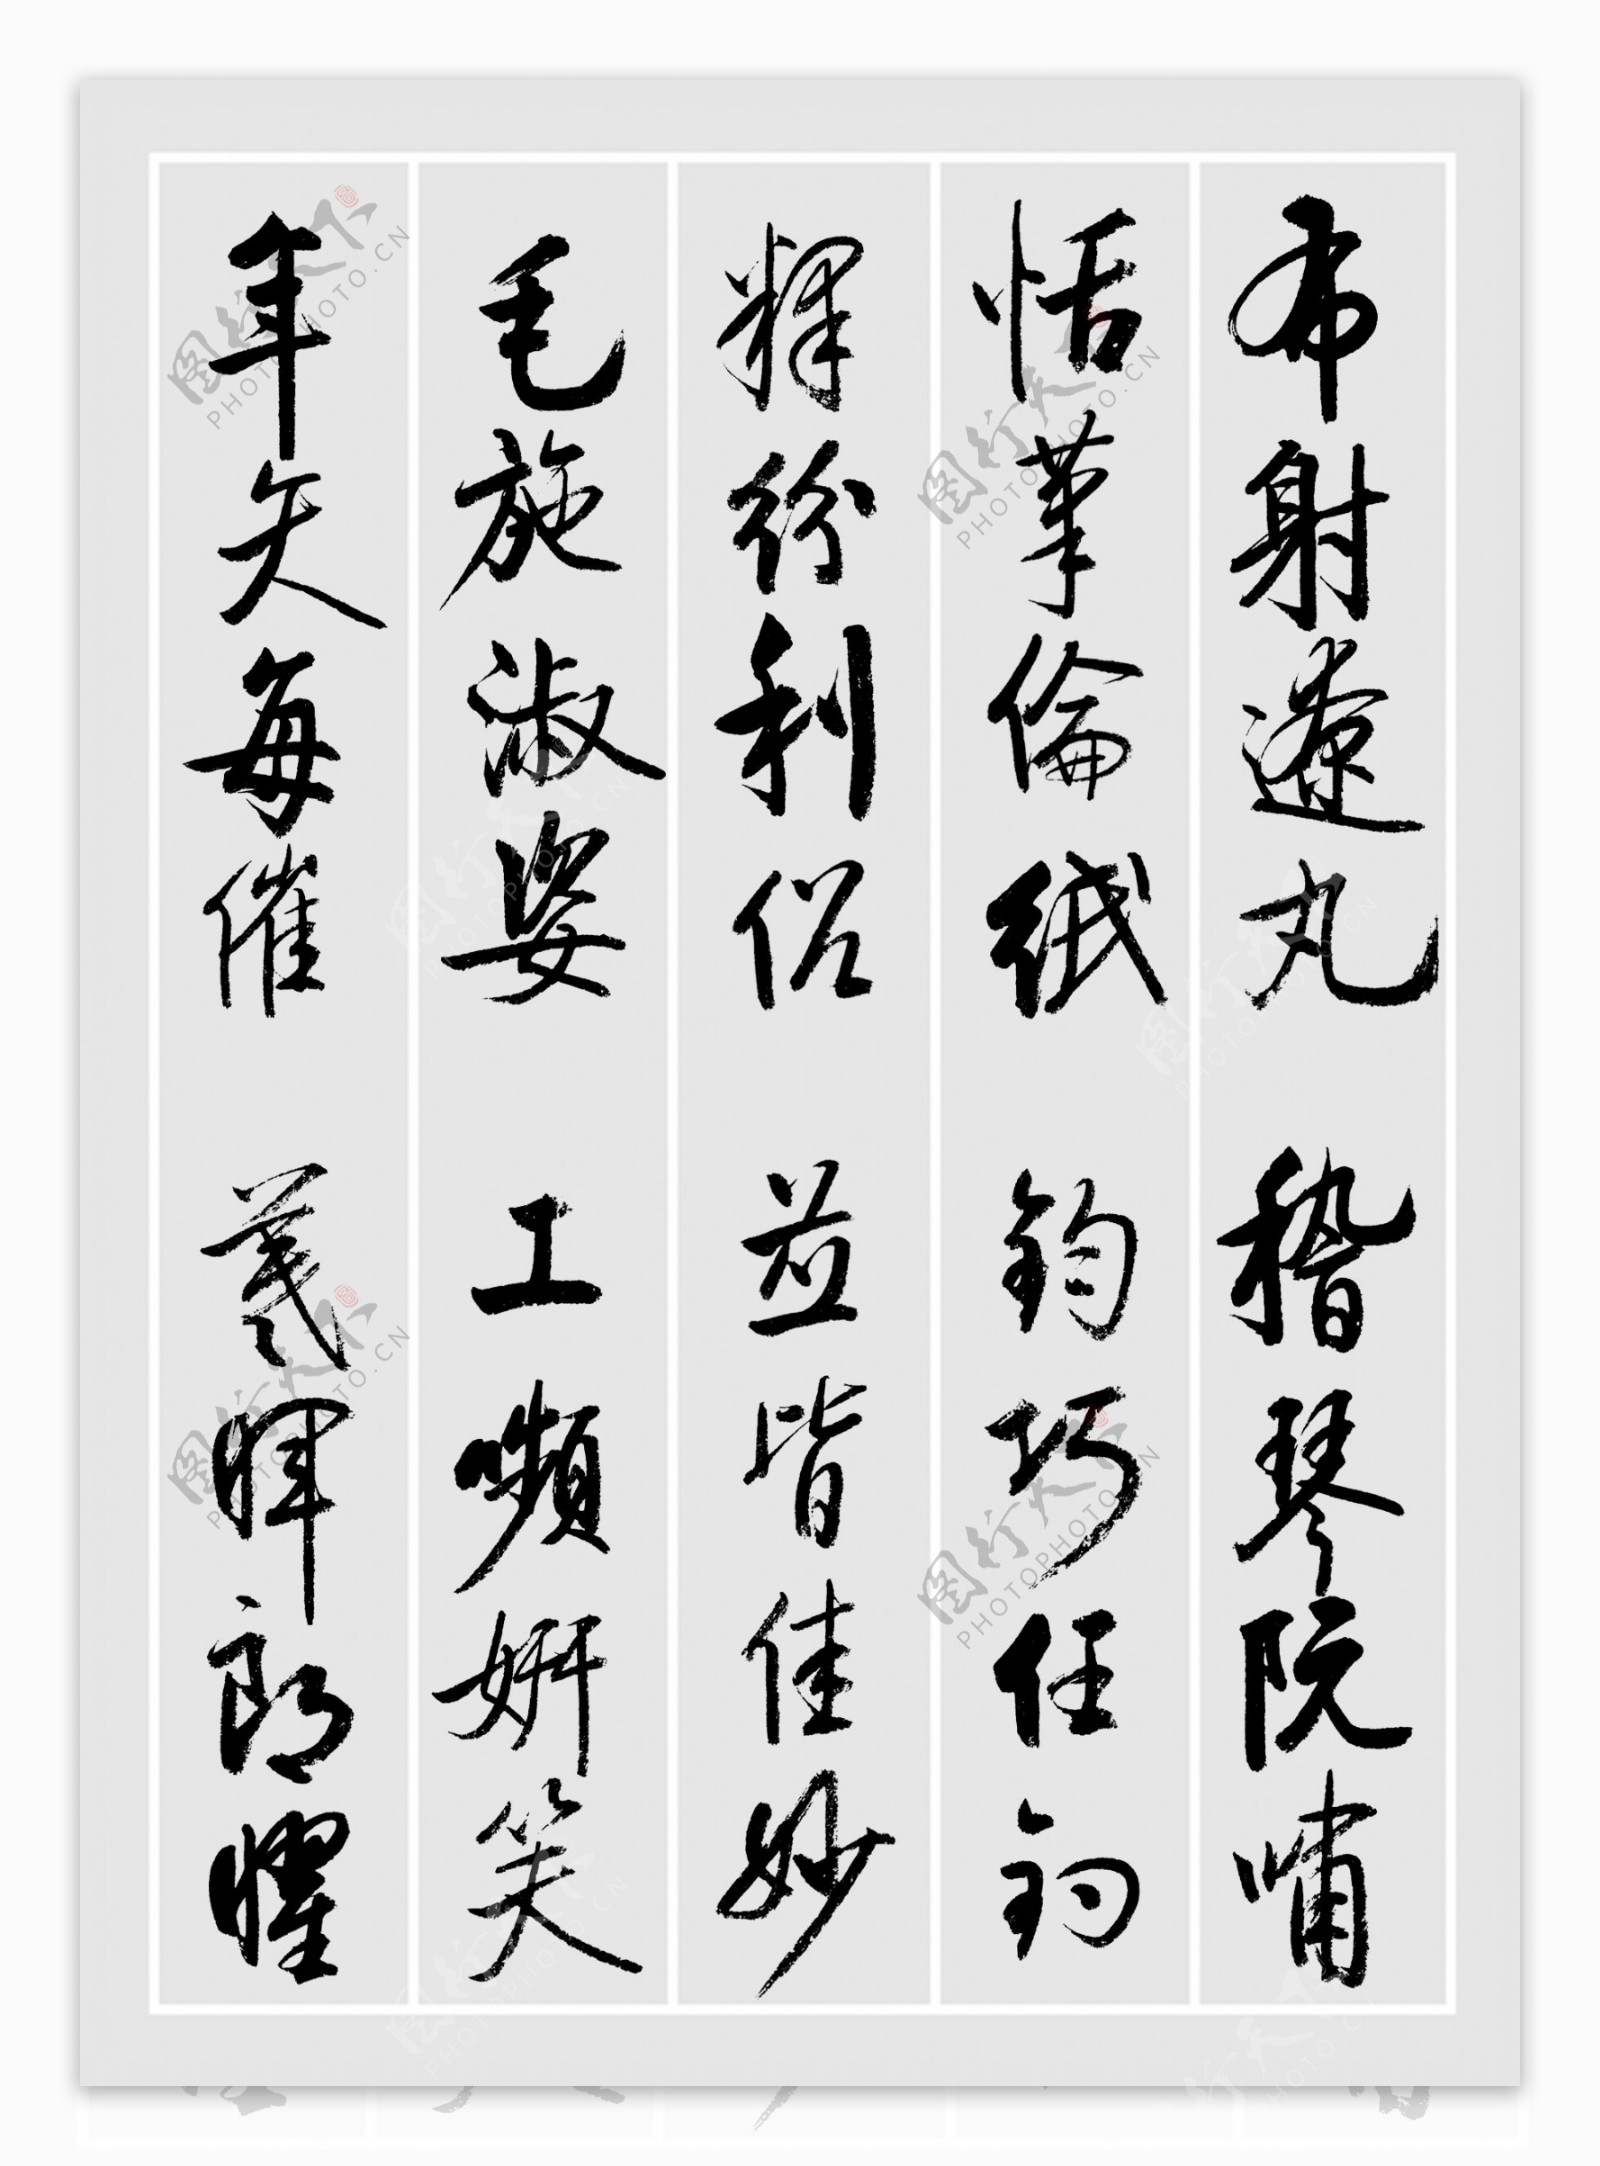 布射遼丸 嵇琴阮嘯
恬筆倫紙 鈞巧任釣
釋紛利俗 並皆佳妙
毛施淑姿 工嚬妍笑
年矢每催 羲暉朗曜
图行天下
PHOTOPHOTO.CN